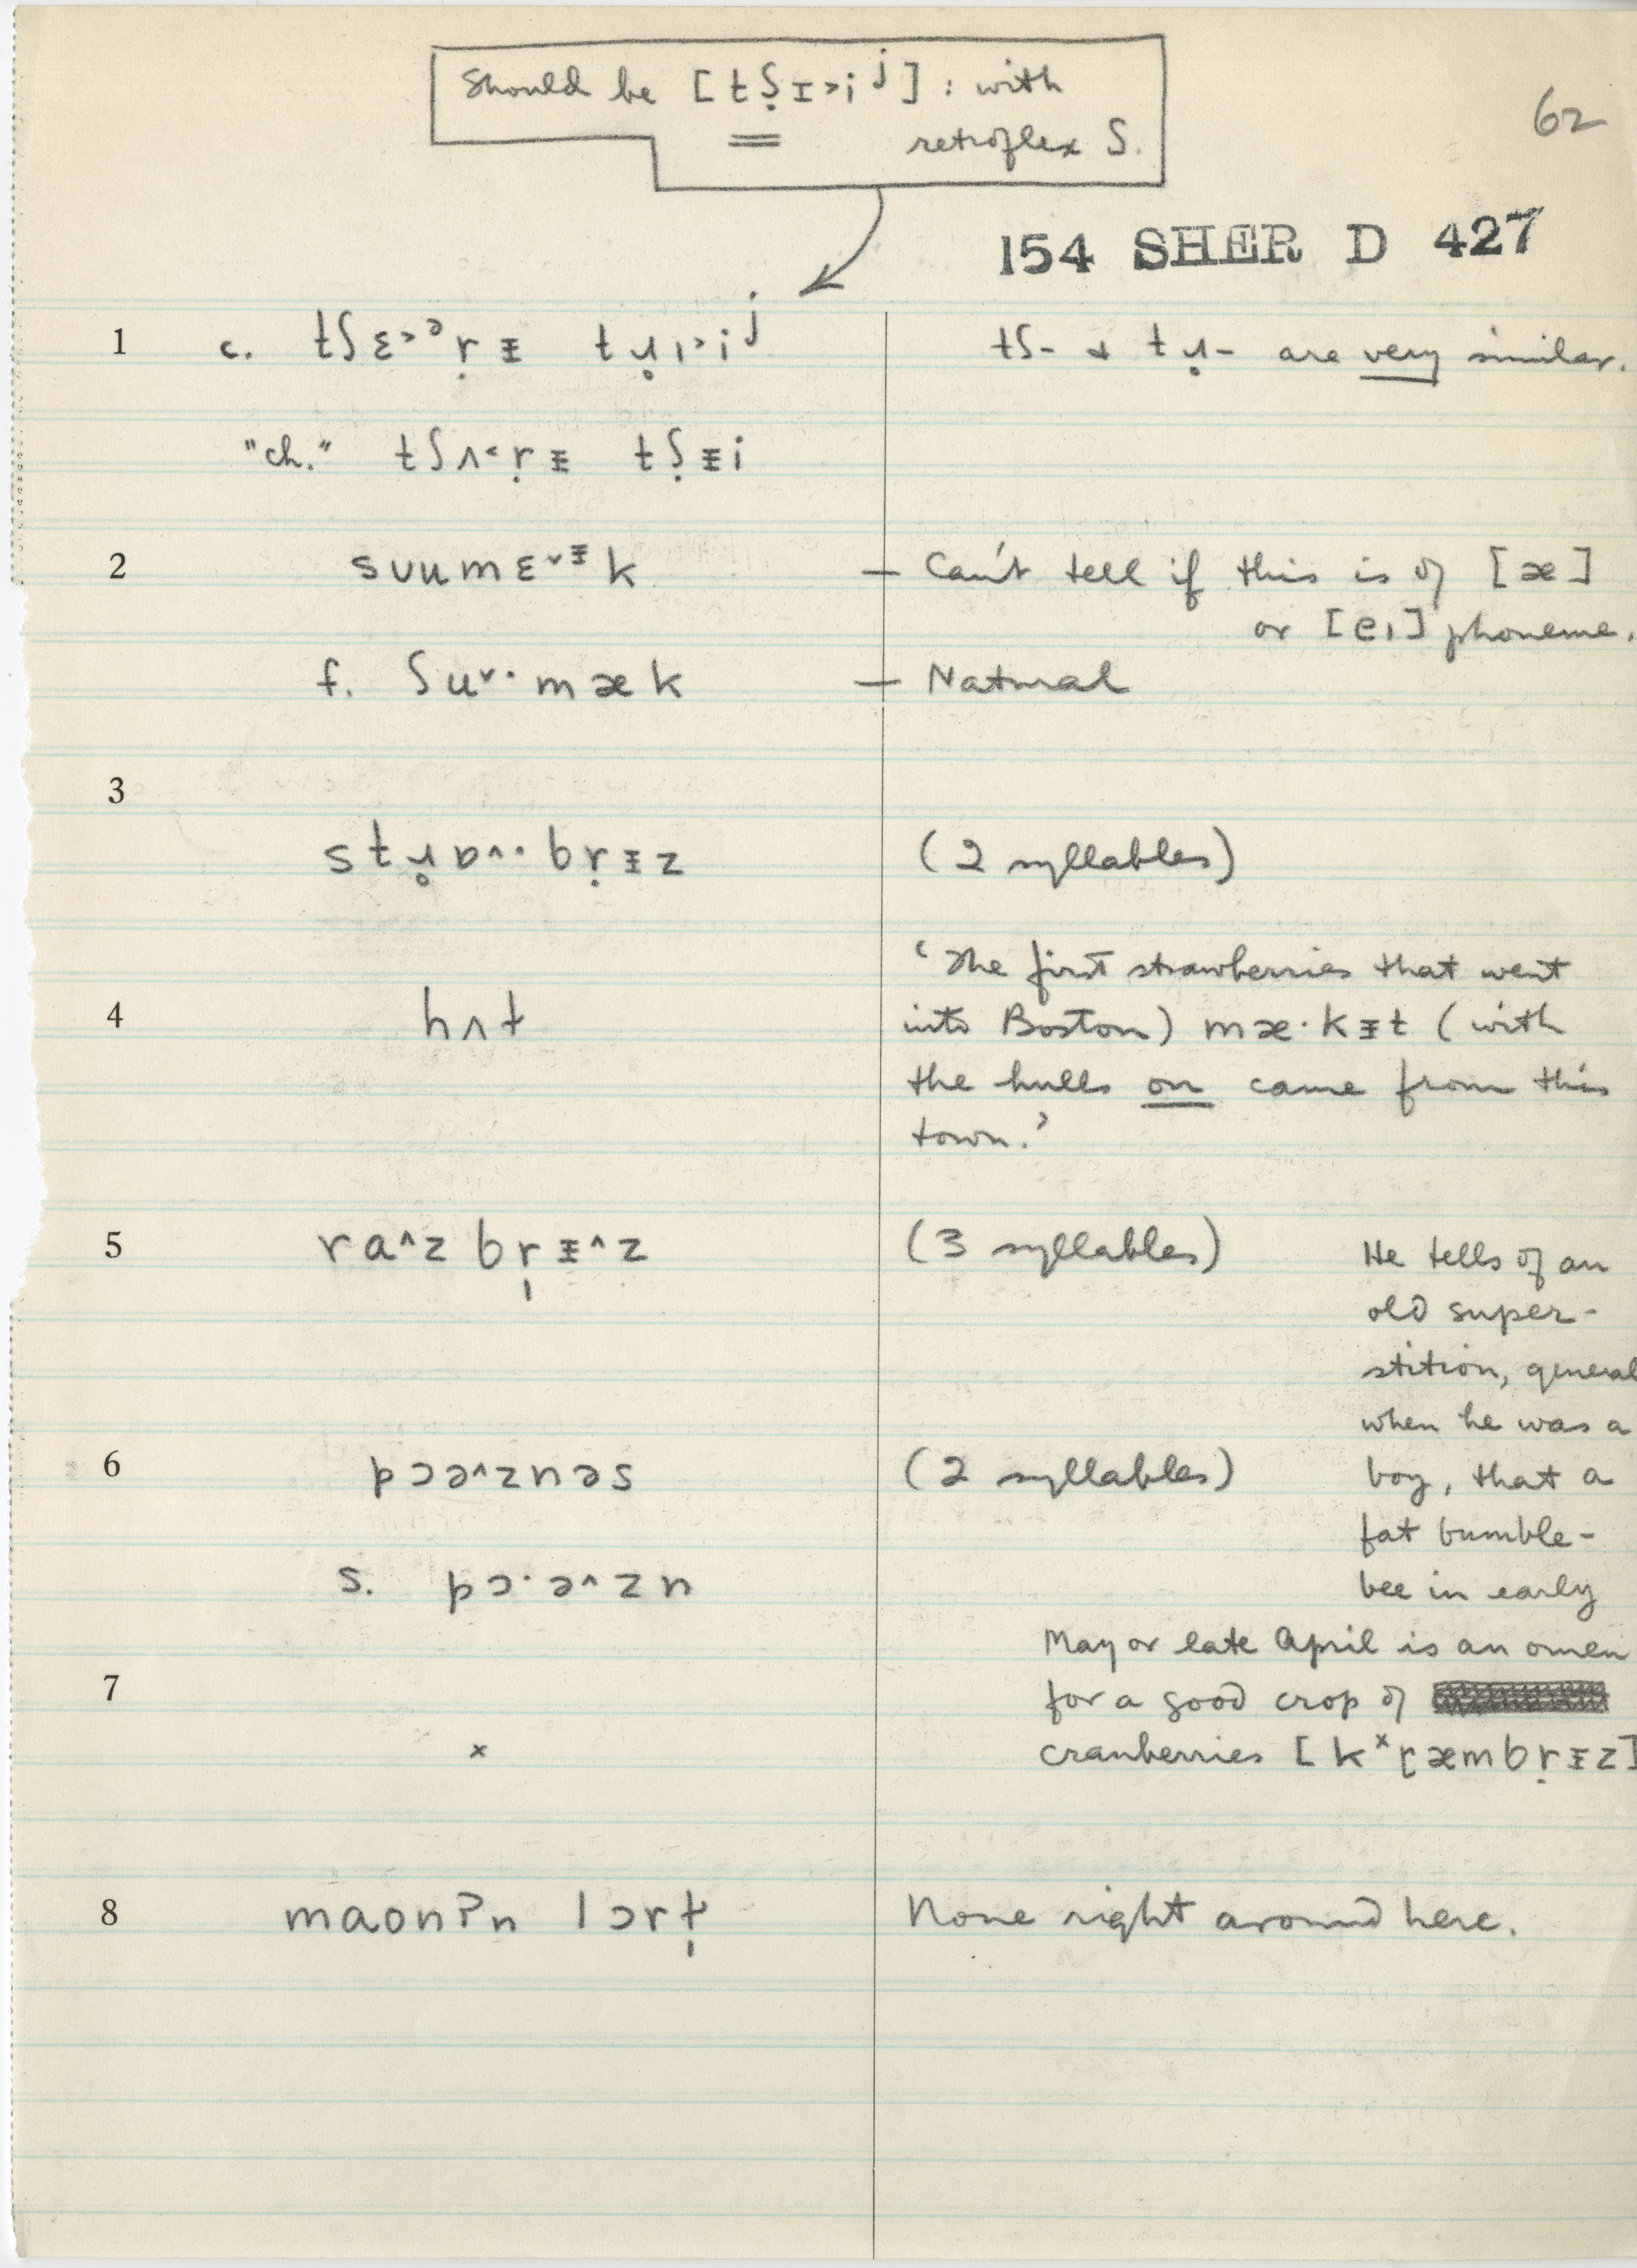 Should be [tʂɪ˃iʲ] : with
retroflex ʃ.
62
154 SHER D 427
1 c. tʃɛ˃ᵊṛᵻ tɹ̥ı˃iʲ
tʃ- & tɹ̥- are very similar.
"ch." tʃʌ˂ṛᵻ tʃ̣ᵻi
2 sᴜumɛ˅ᵻk — Can't tell if this is of [æ]
or [eı] phoneme.
f. ʃu˅·mæk — Natural
3
stɹ̥ɒ^·bṛᵻz (2 syllables)
'The first strawberries that went
4 hʌt into Boston) mæ·kᵻt (with
the hulls on came from this
town.'
5 ra^zbr̩ᵻ^z (3 syllables)
He tells of an
old super-
stition, general
when he was a
6 pɔə^znəs (2 syllables) boy, that a
fat bumble-
s. pɔ·ə^zn bee in early
May or late April is an omen
7 for a good crop of
x cranberries [kˣɽæmbṛᵻz]
8 maonʔn lɔrɫ̩ None right around here.